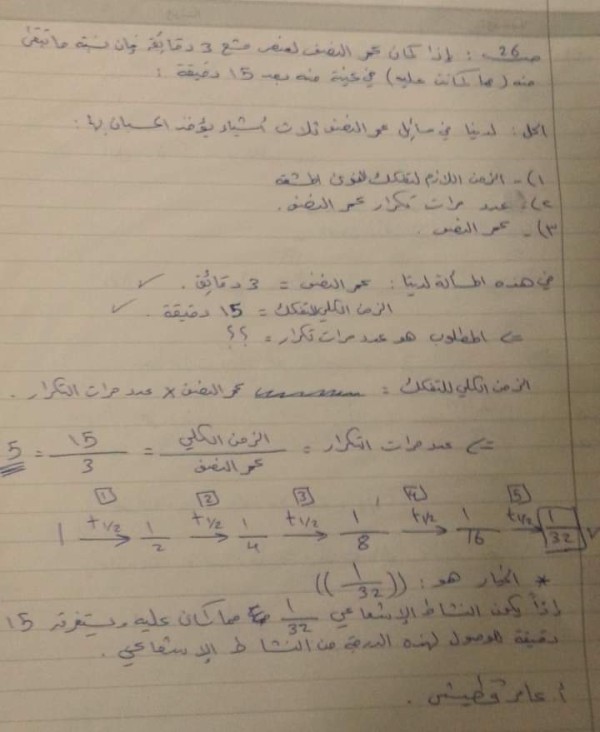 س26 : إذا كان عمر النصف لعنصر مشع 3 دقائق فإن نسبة ما تبقى
منه (مما كانت عليه) في عينة منه بعد 15 دقيقة :
الحل : لدينا في مسائل عمر النصف ثلاث أشياء يؤخذ الحسبان لها :
١) - الزمن اللازم لتفكك النوى المشعة
٢) - عدد مرات تكرار عمر النصف .
٣) - عمر النصف .
في هذه المسألة لدينا : عمر النصف = 3 دقائق . ✓
الزمن الكلي للتفكك = 15 دقيقة . ✓
<= المطلوب هو عدد مرات تكرار = ؟؟
الزمن الكلي للتفكك = عمر النصف × عدد مرات التكرار .
<= عدد مرات التكرار = الزمن الكلي / عمر النصف = 15 / 3 = 5
1 2 3 4 5
1 t1/2→ 1/2 t1/2→ 1/4 t1/2→ 1/8 t1/2→ 1/16 t1/2→ 1/32 ✓
* الخيار هو : ((1/32))
إذاً يكون النشاط الإشعاعي 1/32 مما كان عليه ويستغرق 15
دقيقة للوصول لهذه الدرجة من النشاط الإشعاعي .
أ عامر قطيش .